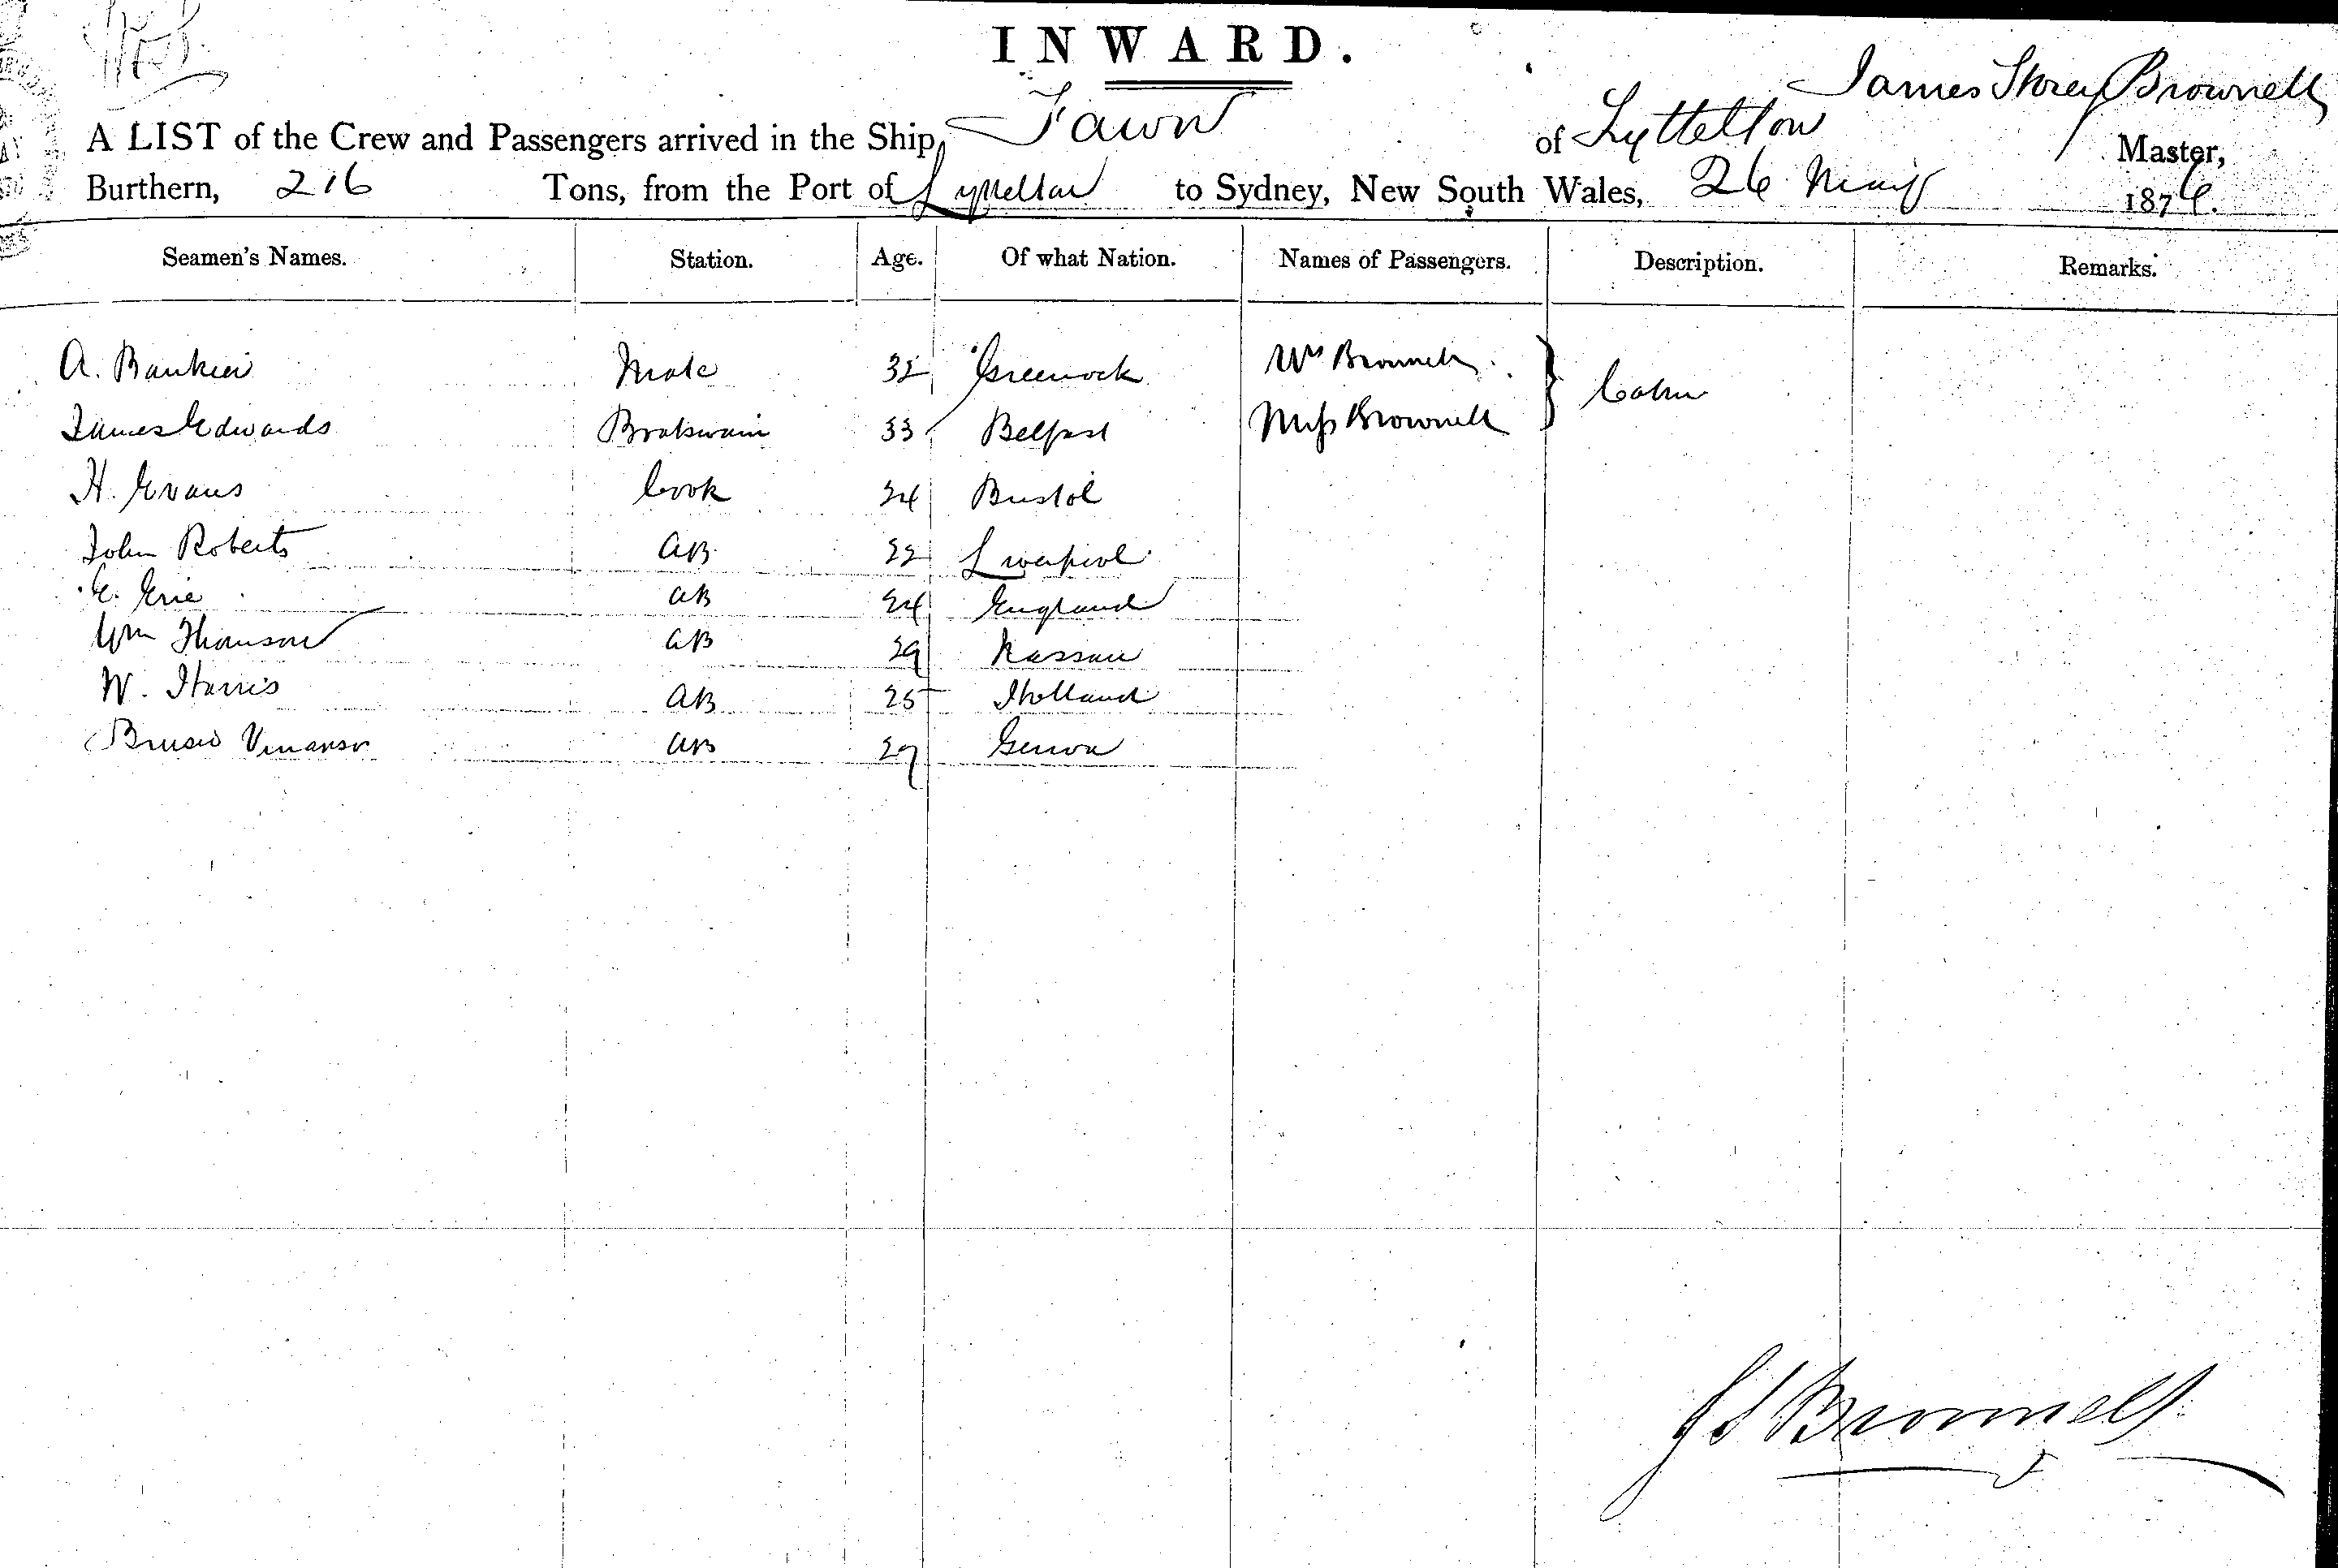 INWARD.
James Storey Brownell
A LIST of the Crew and Passengers arrived in the Ship, Fawn of Lyttelton Master,
Burthern, 216 Tons, from the Port of Lyttelton to Sydney, New South Wales, 26 May 1876.
Seamen's Names. Station. Age. Of what Nation. Names of Passengers. Description. Remarks.
A. Bankier Mate 32 Greenock Mrs Brownell } Cabin
James Edwards Boatswain 33 Belfast Miss Brownell
H. Evans Cook 24 Bristol
John Roberts AB 22 Liverpool
E. Erie AB 24 England
Wm Thomson AB 29 Nassau
W. Harris AB 25 Holland
AB 27 Genoa
J S Brownell